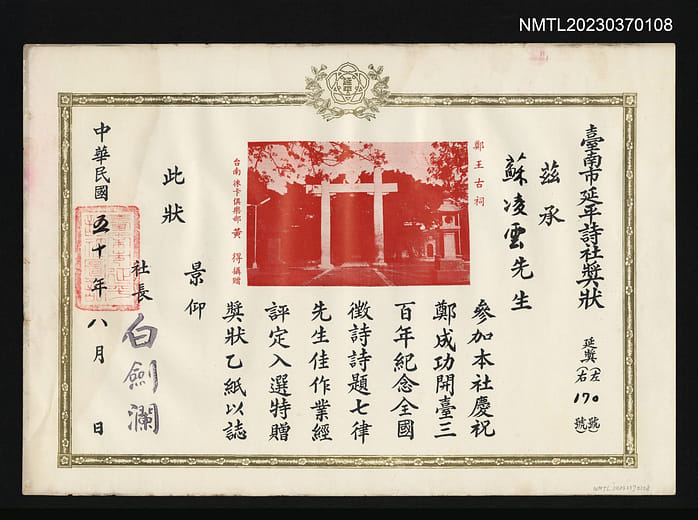 NMTL20230370108
延平
臺南市延平詩社獎狀
延獎(左右)170號(號)
茲承
蘇凌雲先生
鄭王古祠
台南徠卡俱樂部 黃得攝贈
參加本社慶祝
鄭成功開臺三
百年紀念全國
徵詩詩題七律
先生佳作業經
評定入選特贈
獎狀乙紙以誌
景仰
此狀
社長 白劍瀾
中華民國五十年八月 日
NMTL20230370108